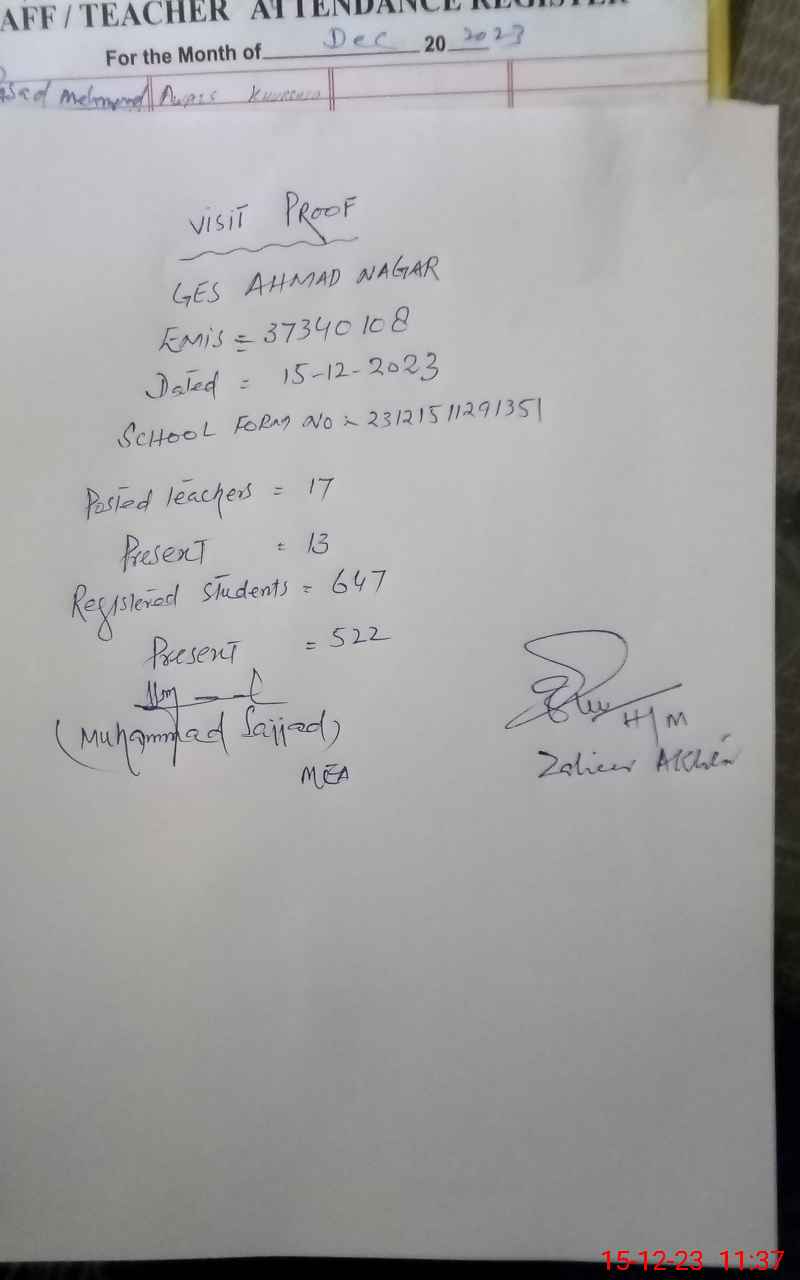 AFF / TEACHER ATTENDANCE REGISTER
For the Month of Dec 20 2023
Awais Khurshid
VISIT PROOF
GES AHMAD NAGAR
Emis = 37340108
Dated = 15-12-2023
SCHOOL FORM NO :- 23121511291351
Posted teachers = 17
Present = 13
Registered students = 647
Present = 522
H/M
(Muhammad Sajjad)
Zaheer Akhtar
MEA
15-12-23 11:37